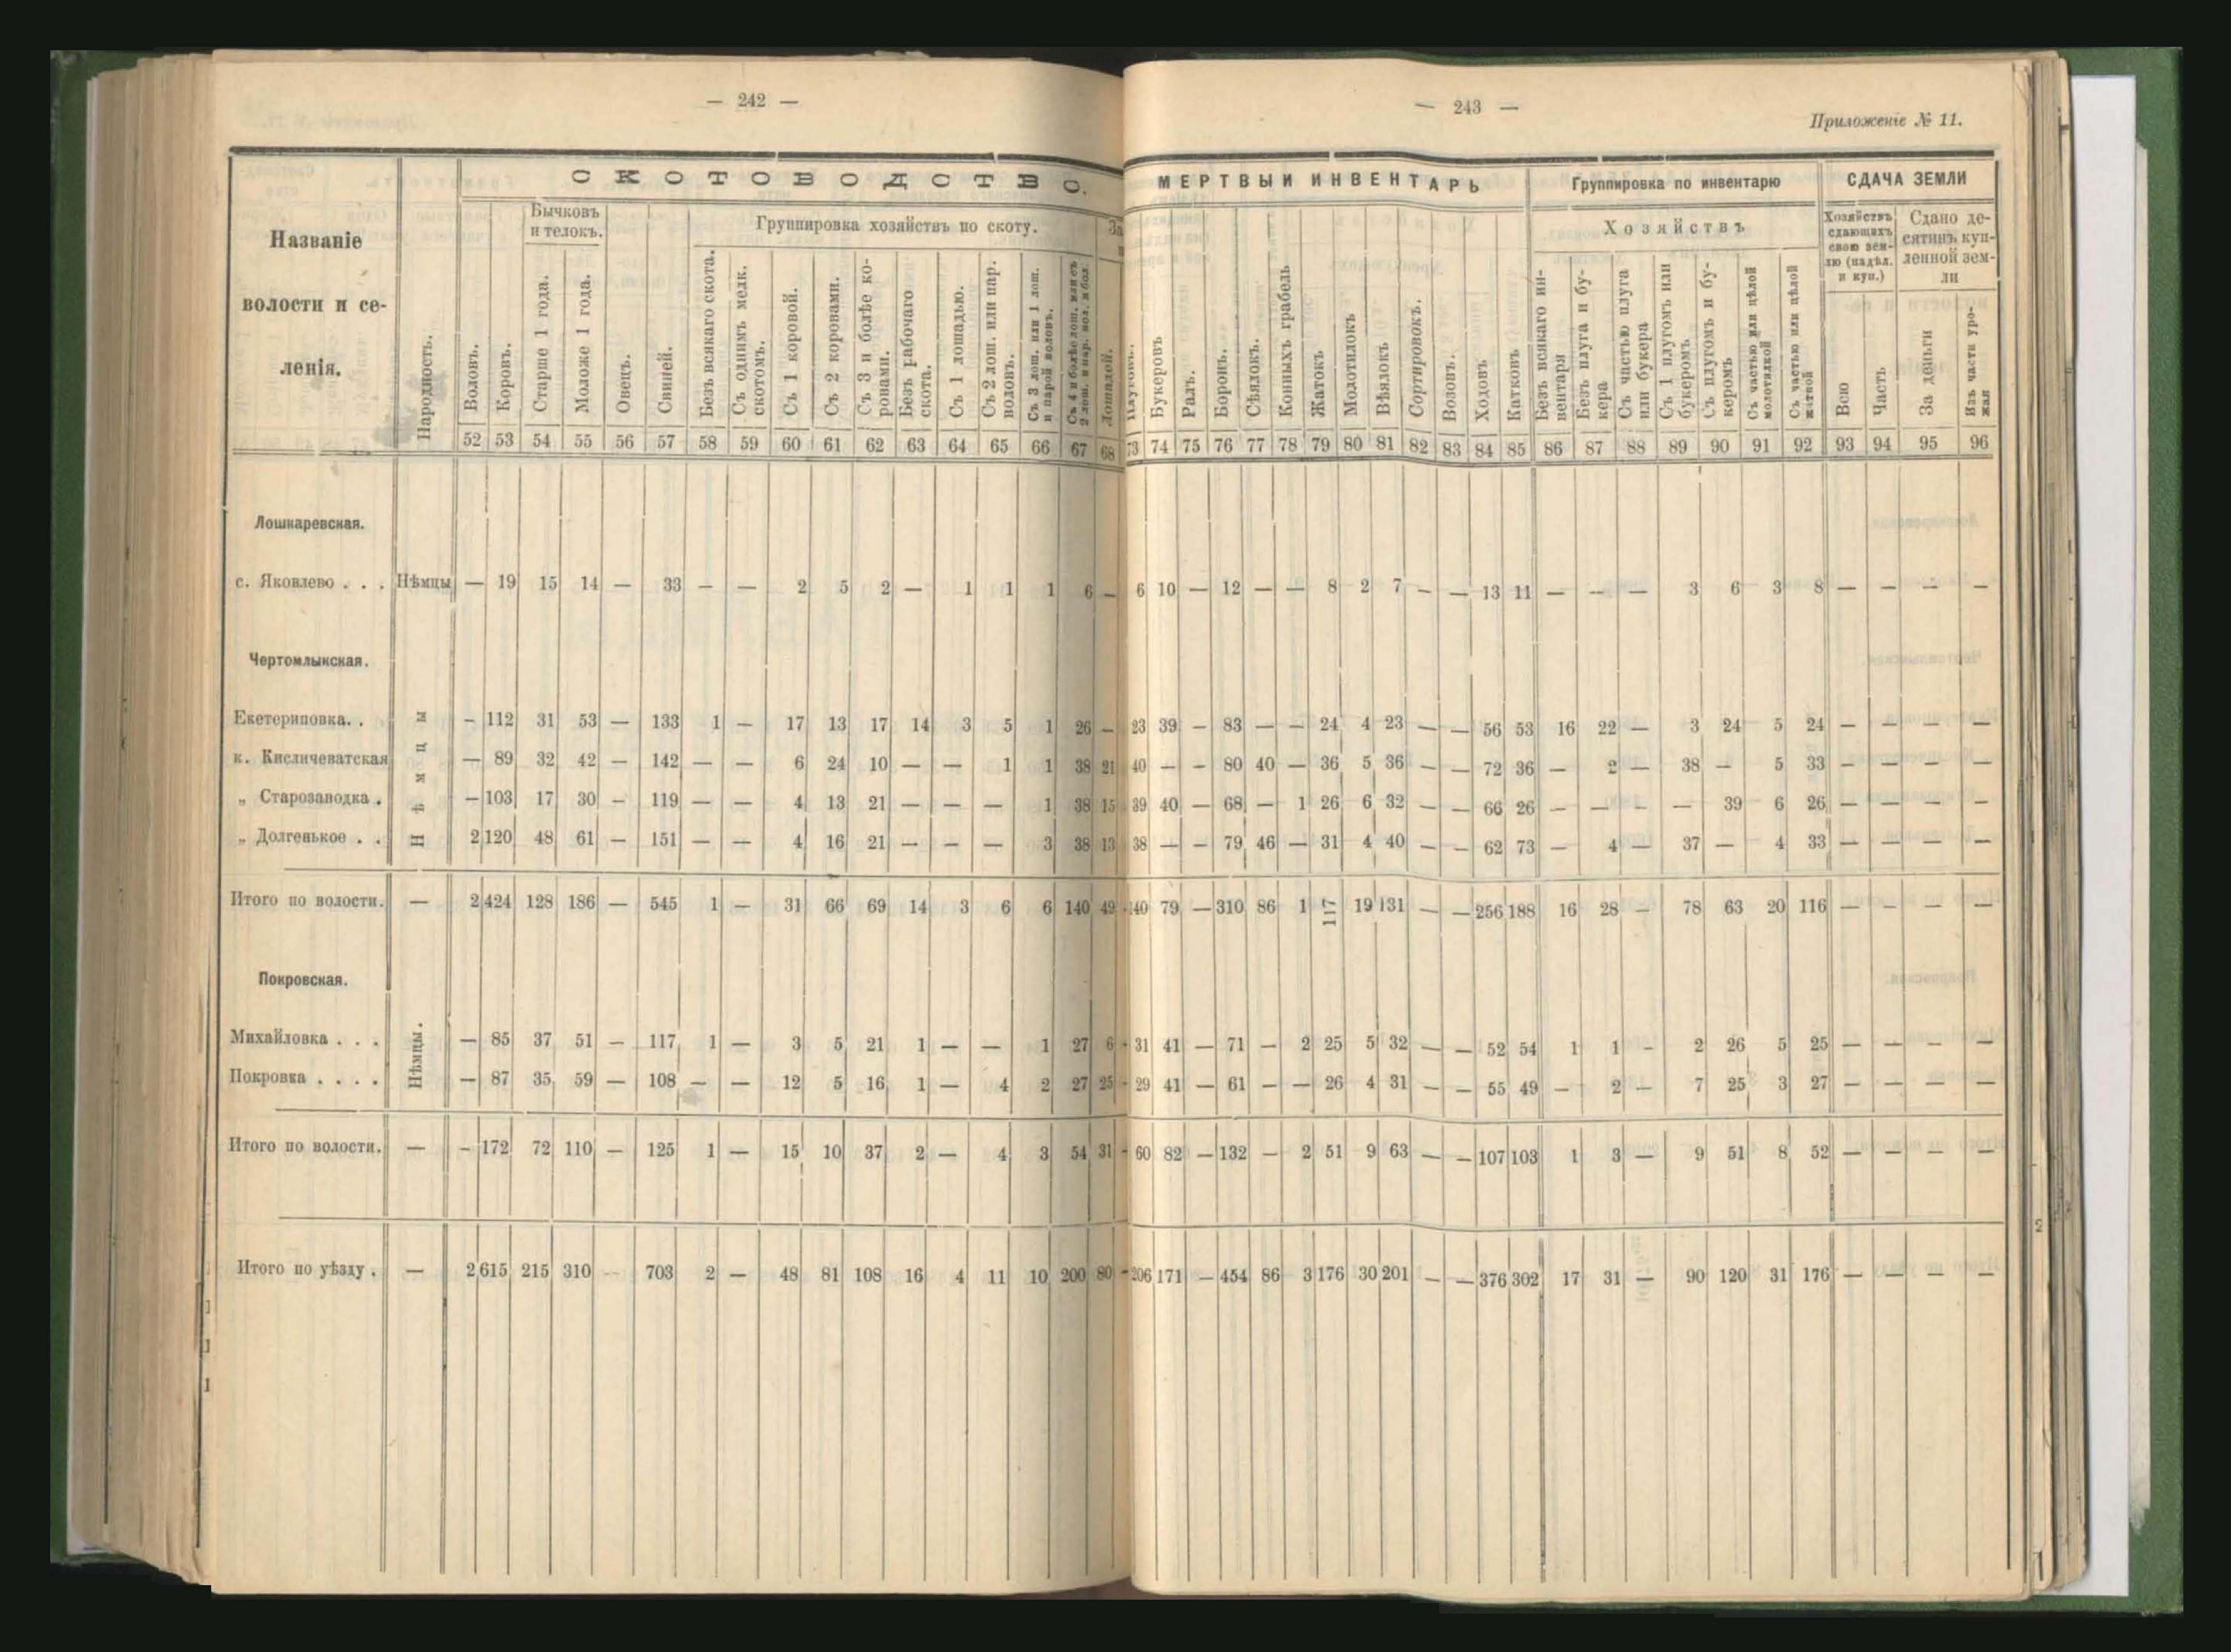 — 242 —
С К О Т О В О Д С Т В О.
Названіе
волости и се-
ленія.
Народность.
Воловъ.
Коровъ.
Бычковъ
и телокъ.
Старше 1 года.
Моложе 1 года.
Овецъ.
Свиней.
Группировка хозяйствъ по скоту.
Безъ всякаго скота.
Съ однимъ мелк.
скотомъ.
Съ 1 коровой.
Съ 2 коровами.
Съ 3 и болѣе ко-
ровами.
Безъ рабочаго
скота.
Съ 1 лошадью.
Съ 2 лош. или пар.
воловъ.
Съ 3 лош. или 1 лош.
и парой воловъ.
Съ 4 и болѣе лош. или съ
2 лош. и пар. вол. и бол.
За
Лошадей.
52 53 54 55 56 57 58 59 60 61 62 63 64 65 66 67 68
Лошкаревская.
с. Яковлево . . . Нѣмцы — 19 15 14 — 33 — — 2 5 2 — 1 1 1 6 —
Чертомлыкская.
Нѣмцы
Екетериповка. . - 112 31 53 — 133 1 — 17 13 17 14 3 5 1 26 —
к. Кисличеватская — 89 32 42 — 142 — — 6 24 10 — — 1 1 38 21
„ Старозаводка . — 103 17 30 — 119 — — 4 13 21 — — — 1 38 15
„ Долгенькое . . 2 120 48 61 — 151 — — 4 16 21 — — — 3 38 13
Итого по волости. — 2 424 128 186 — 545 1 — 31 66 69 14 3 6 6 140 49
Покровская.
Нѣмцы.
Михайловка . . . — 85 37 51 — 117 1 — 3 5 21 1 — — 1 27 6
Покровка . . . . — 87 35 59 — 108 — — 12 5 16 1 — 4 2 27 25
Итого по волости. — - 172 72 110 — 125 1 — 15 10 37 2 — 4 3 54 31
Итого по уѣзду . — 2 615 215 310 — 703 2 — 48 81 108 16 4 11 10 200 80
— 243 —
Приложеніе № 11.
МЕРТВЫЙ ИНВЕНТАРЬ
Группировка по инвентарю
СДАЧА ЗЕМЛИ
Плуговъ.
Букеровъ
Ралъ.
Боронъ.
Сѣялокъ.
Конныхъ грабель
Жатокъ
Молотилокъ
Вѣялокъ
Сортировокъ.
Возовъ.
Ходовъ
Катковъ
Хозяйствъ
Безъ всякаго ин-
вентаря
Безъ плуга и бу-
кера
Съ частью плуга
или букера
Съ 1 плугомъ или
букеромъ
Съ плугомъ и бу-
керомъ
Съ частью или цѣлой
молотилкой
Съ частью или цѣлой
жаткой
Хозяйствъ
сдающихъ
свою зем-
лю (надѣл.
и куп.)
Всю
Часть
Сдано де-
сятинъ куп-
ленной зем-
ли
За деньги
Изъ части уро-
жая
73 74 75 76 77 78 79 80 81 82 83 84 85 86 87 88 89 90 91 92 93 94 95 96
6 10 — 12 — — 8 2 7 — — 13 11 — — — 3 6 3 8 — — — —
23 39 — 83 — — 24 4 23 — — 56 53 16 22 — 3 24 5 24 — — — —
40 — — 80 40 — 36 5 36 — — 72 36 — 2 — 38 — 5 33 — — — —
39 40 — 68 — 1 26 6 32 — — 66 26 — — — — 39 6 26 — — — —
38 — — 79 46 — 31 4 40 — — 62 73 — 4 — 37 — 4 33 — — — —
140 79 — 310 86 1 117 19 131 — — 256 188 16 28 — 78 63 20 116 — — — —
31 41 — 71 — 2 25 5 32 — — 52 54 1 1 — 2 26 5 25 — — — —
29 41 — 61 — — 26 4 31 — — 55 49 — 2 — 7 25 3 27 — — — —
60 82 — 132 — 2 51 9 63 — — 107 103 1 3 — 9 51 8 52 — — — —
206 171 — 454 86 3 176 30 201 — — 376 302 17 31 — 90 120 31 176 — — — —